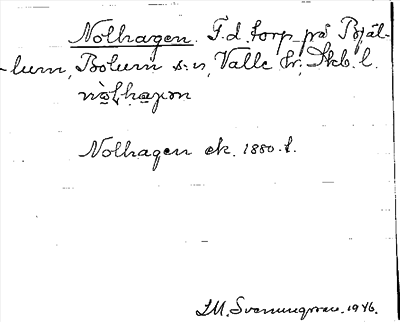 Nolhagen. F.d. torp på Bjäl-
-lum, Bolum s:n, Valle hr, Skb. l.
Nolhagen ek. 1880-t.
M. Svenungsson. 1946.